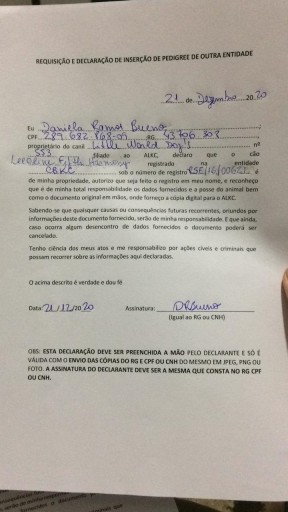 REQUISIÇÃO E DECLARAÇÃO DE INSERÇÃO DE PEDIGREE DE OUTRA ENTIDADE
21 de Dezembro 2020
Eu Daniella Ramos Bueno,
CPF RG
proprietário do canil Little World Dog's nº
583 filiado ao ALKC, declaro que o cão
Fifth Harmony registrado na entidade
CBKC sob o número de registro , é
de minha propriedade, autorizo que seja feito o registro em meu nome, e reconheço
que é de minha total responsabilidade os dados fornecidos e a posse do animal bem
como o documento original em mãos, onde forneço a cópia digital para o ALKC.
Sabendo se que quaisquer causas ou consequências futuras recorrentes, oriundos por
informações deste documento fornecido, serão de minha responsabilidade. E que ainda,
caso ocorra algum desencontro de dados fornecidos o documento poderá ser
cancelado.
Tenho ciência dos meus atos e me responsabilizo por ações cíveis e criminais que
possam recorrer sobre as informações aqui declarados.
O acima descrito é verdade e dou fé
Data: 21/12/2020 Assinatura: DRBueno
(Igual ao RG ou CNH)
OBS: ESTA DECLARAÇÃO DEVE SER PREENCHIDA A MÃO PELO DECLARANTE E SÓ É
VÁLIDA COM O ENVIO DAS CÓPIAS DO RG E CPF OU CNH DO MESMO EM JPEG, PNG OU
FOTO. A ASSINATURA DO DECLARANTE DEVE SER A MESMA QUE CONSTA NO RG CPF
OU CNH.